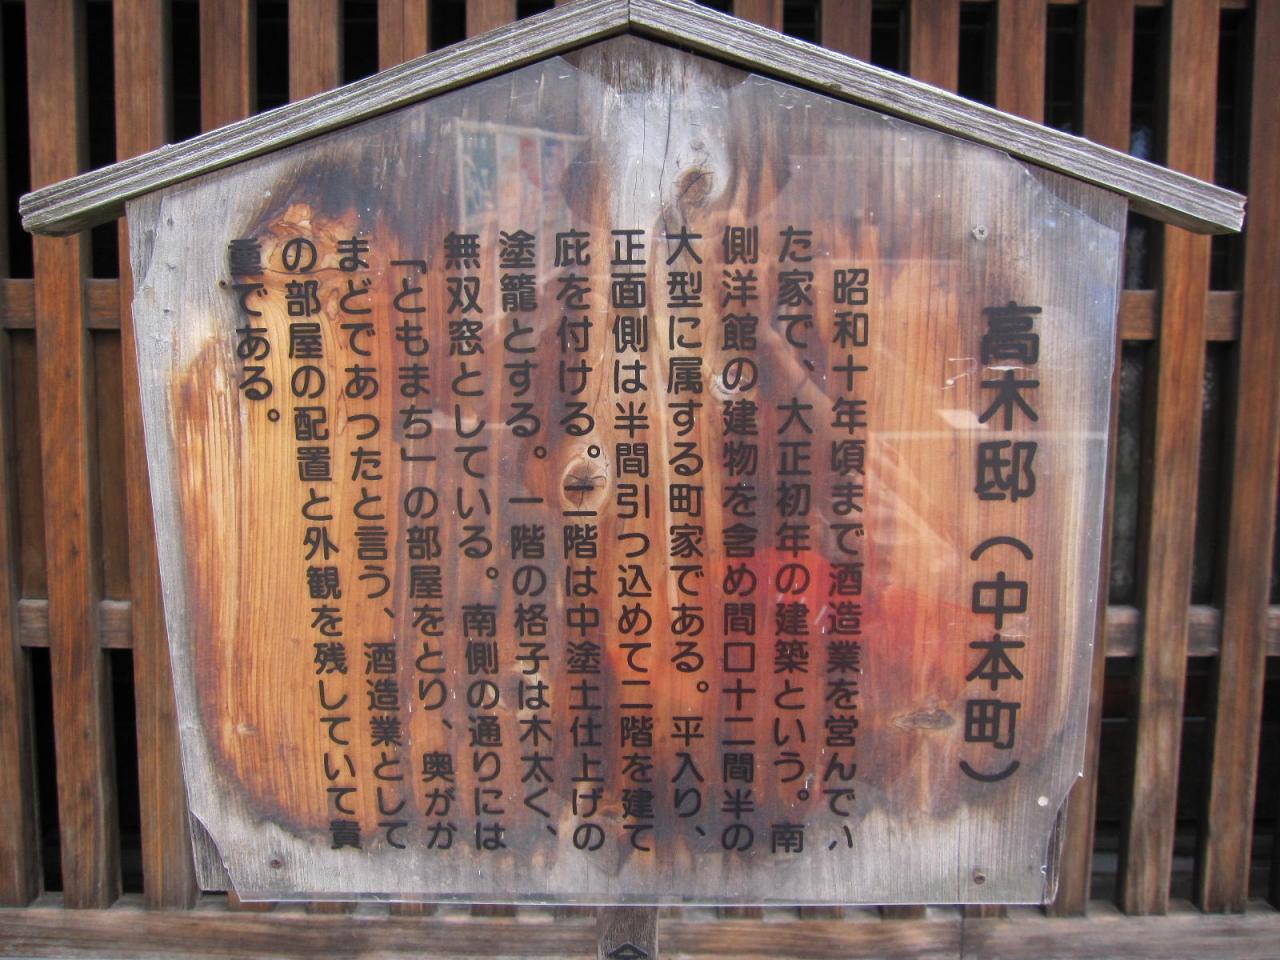 高木邸（中本町）
昭和十年頃まで酒造業を営んでい
た家で、大正初年の建築という。南
側洋館の建物を含め間口十二間半の
大型に属する町家である。平入り、
正面側は半間引っ込めて二階を建て
庇を付ける。二階は中塗土仕上げの
塗籠とする。一階の格子は木太く、
無双窓としている。南側の通りには
「ともまち」の部屋をとり、奥がか
まどであつたと言う、酒造業として
の部屋の配置と外観を残していて貴
重である。